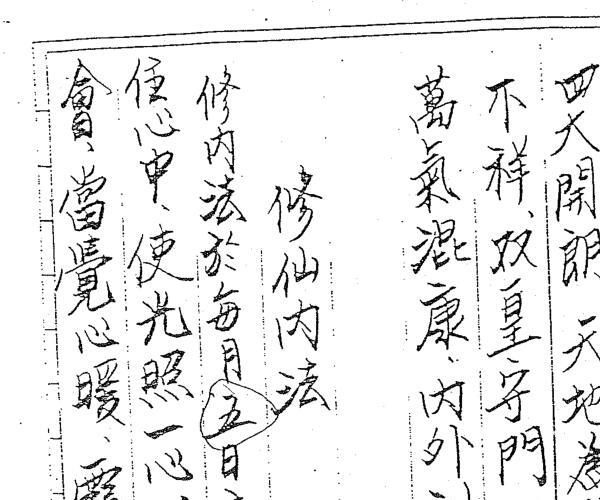 四大開朗、天地為
不祥、双皇守門
萬氣混康、內外
修仙內法
修內法於每月五日
住心中、使光照一心、
會、當覺心暖、霞